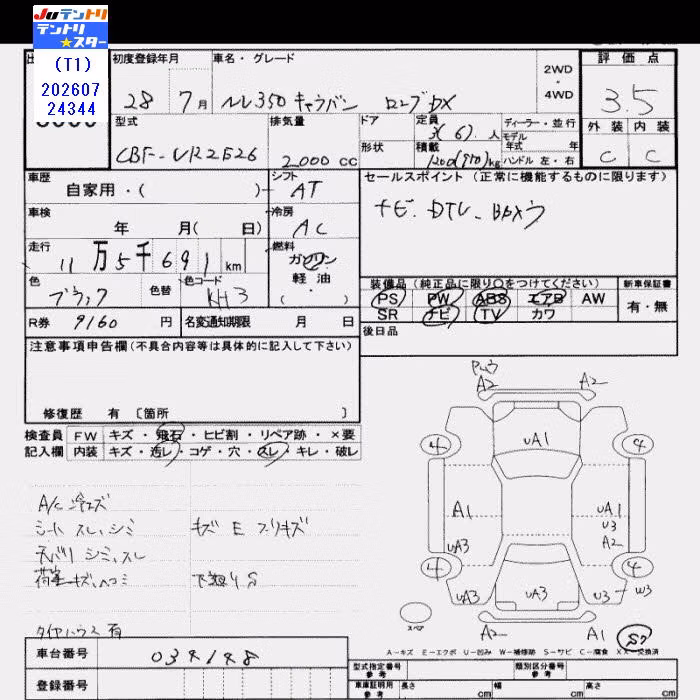 JUテントリ
テントリ
★スター
(T1)
202607
24344
初度登録年月
28 年 7 月
車名・グレード
NV350 キャラバン ロングDX
2WD
・
4WD
評価点
3.5
外装 内装
C C
型式
CBF-VR2E26
排気量
2,000 cc
ドア
形状
定員
3(6) 人
積載
kg
ディーラー・並行
モデル
年式 年
ハンドル 左・右
車歴
自家用・( )
シフト
AT
車検
年 月( 日)
冷房
AC
走行
11万5千691 km
燃料
ガソリン
軽油
・
( )
色
ブラック
色替
色コード
KH3
R券 9160 円
名変通知期限 月 日
セールスポイント (正常に機能するものに限ります)
ナビ. DTV.
装備品 (純正品に限り○をつけてください)
PS PW ABS エアB AW
SR ナビ TV カワ
新車保証書
有・無
後日品
注意事項申告欄(不具合内容等は具体的に記入して下さい)
修復歴 有 〔箇所 〕
検査員 FW キズ・飛石・ヒビ割・リペア跡・×要
記入欄 内装 キズ・汚レ・コゲ・穴・スレ・キレ・破レ
A/C 冷エズ
シート スレ,シミ
キズ E スリキズ
天バリ シミ,スレ
荷室キズ,ヘコミ
下廻り S
タイヤハウス 有
A2 A2
UA1
4 4
A1
UA1
U3
A2
UA3
4 4
UA3 UA3 U3 W3
スペア
A2 A1 S7
A-キズ E-エクボ U-凹み W-補修跡 S-サビ C-腐食 XX-交換済
車台番号 034148
登録番号
型式指定番号
参考
類別区分番号
参考
車庫証明用
参考
長さ cm 幅 cm 高さ cm